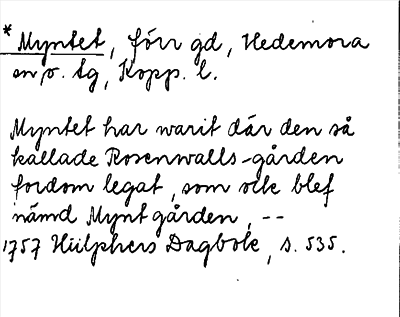 * Myntet, förr gd, Hedemora
sn, o. tg, Kopp. l.
Myntet har warit där den så
kallade Rosenwalls-gården
fordom legat, som ock blef
nämd Mynt gården, --
1757 Hülphers Dagbok, s. 535.